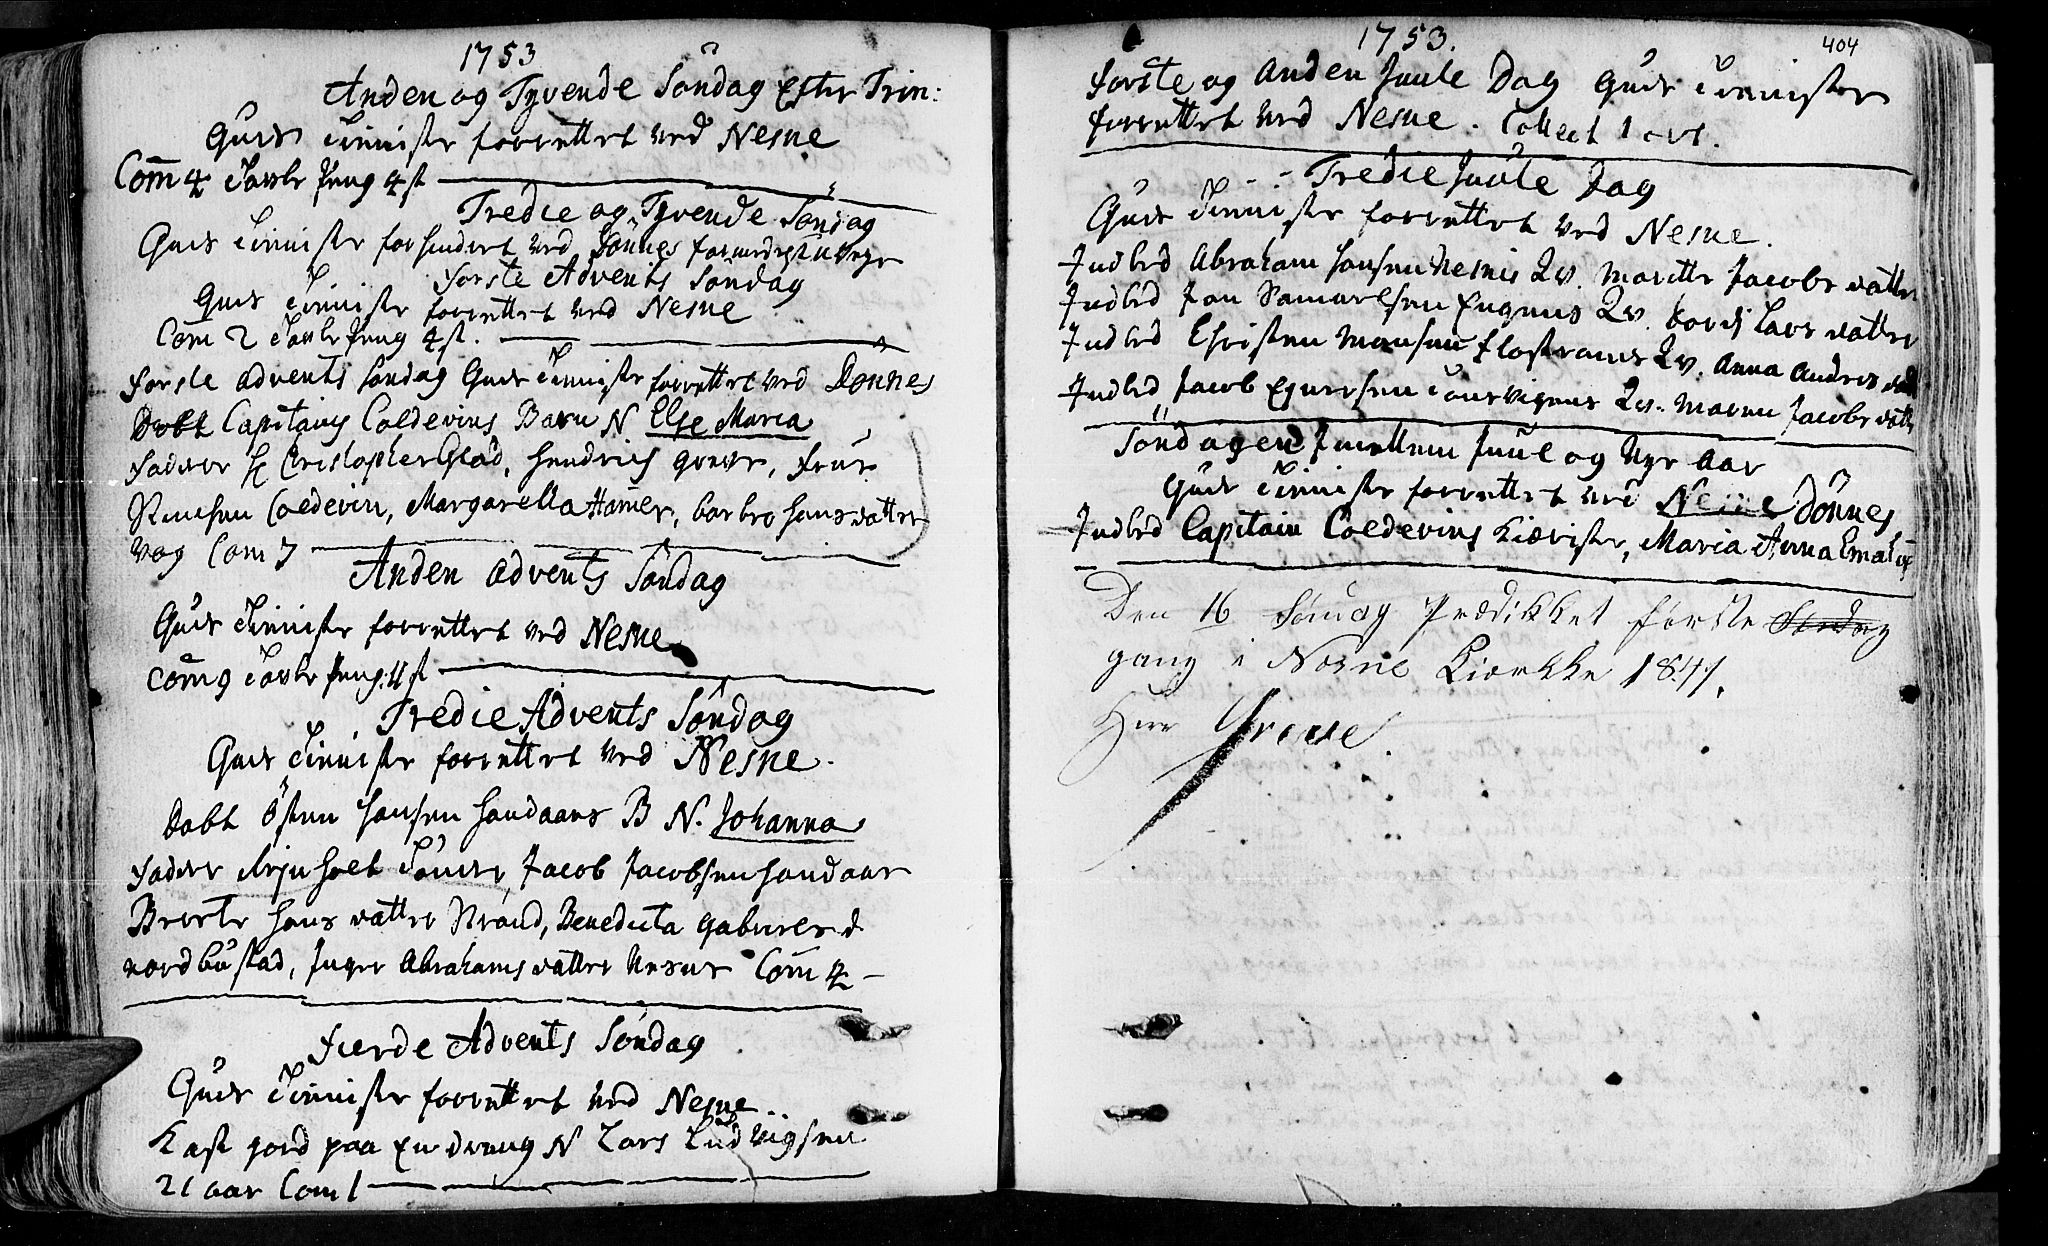 1753
Anden og Tyvende Söndag Efter Trin:
Guds Tienniste forrettet ved Nesne
Com̄ 4 Tavle peng 4 st
Tredie og Tyvende Söndag
Guds Tienniste forhindret ved Dönnes formedelst u
første Advents Söndag
Guds Tienniste forrettet ved Nesne
Com̄ 2 Tavle peng 4 st.
første advents Söndag Guds Tienniste forrettet ved Dönnes
Dobt Capitains Coldevins Barn N Else Maria
fadder Hr Cristopher Glad, Hendrich greger, frue
Coldevin, Margaretta Hamer, barbro Hans datter
Vog Com 7
Anden Advents Söndag
Guds Tienniste forrettet ved Nesne
Com̄ 9 Tavle peng 4 st
Tredie Advents Söndag
Guds Tienniste forrettet ved Nesne.
Dobt Østen Hansen Handaaes B N. Johanna
fadder Holt Jacob Jacobsen Handaae
Berete Hans datter Strand, Benedicta gabriels d
nordbustad, Inger Abrahams datter Nesne Com̄ 4
fierde Advents Söndag
Guds Tienniste forrettet ved Nesne
Kast jord paa En dreng N Lars Ludvigsen
21 aar Com 1
1753.
404
første og Anden Juule Dag Guds Tienniste
forrettet ved Nesne. Collect 1 ort.
Tredie Juule Dag
Guds Tienniste forrettet ved Nesne.
Indled Abraham Hansen Nesnis Qv. Maritte Jacobs datter
Indled Jon Samuelsen Engenes Qv. bordi Lars datter
Indled Christen Monsen Qv. Anna Anders datt
Indled Jacob Qv. Maren Jacobs datt
Söndagen Imellem Juul og Nye Aar
Guds Tienniste forrettet ved Nesne Dönnes
Indled Capitain Coldevins Kieriste, Maria Anna Emah
Den 16 Søndag Prædikket første Søndag
gang i Nesne Kierkke 1841.
Herr